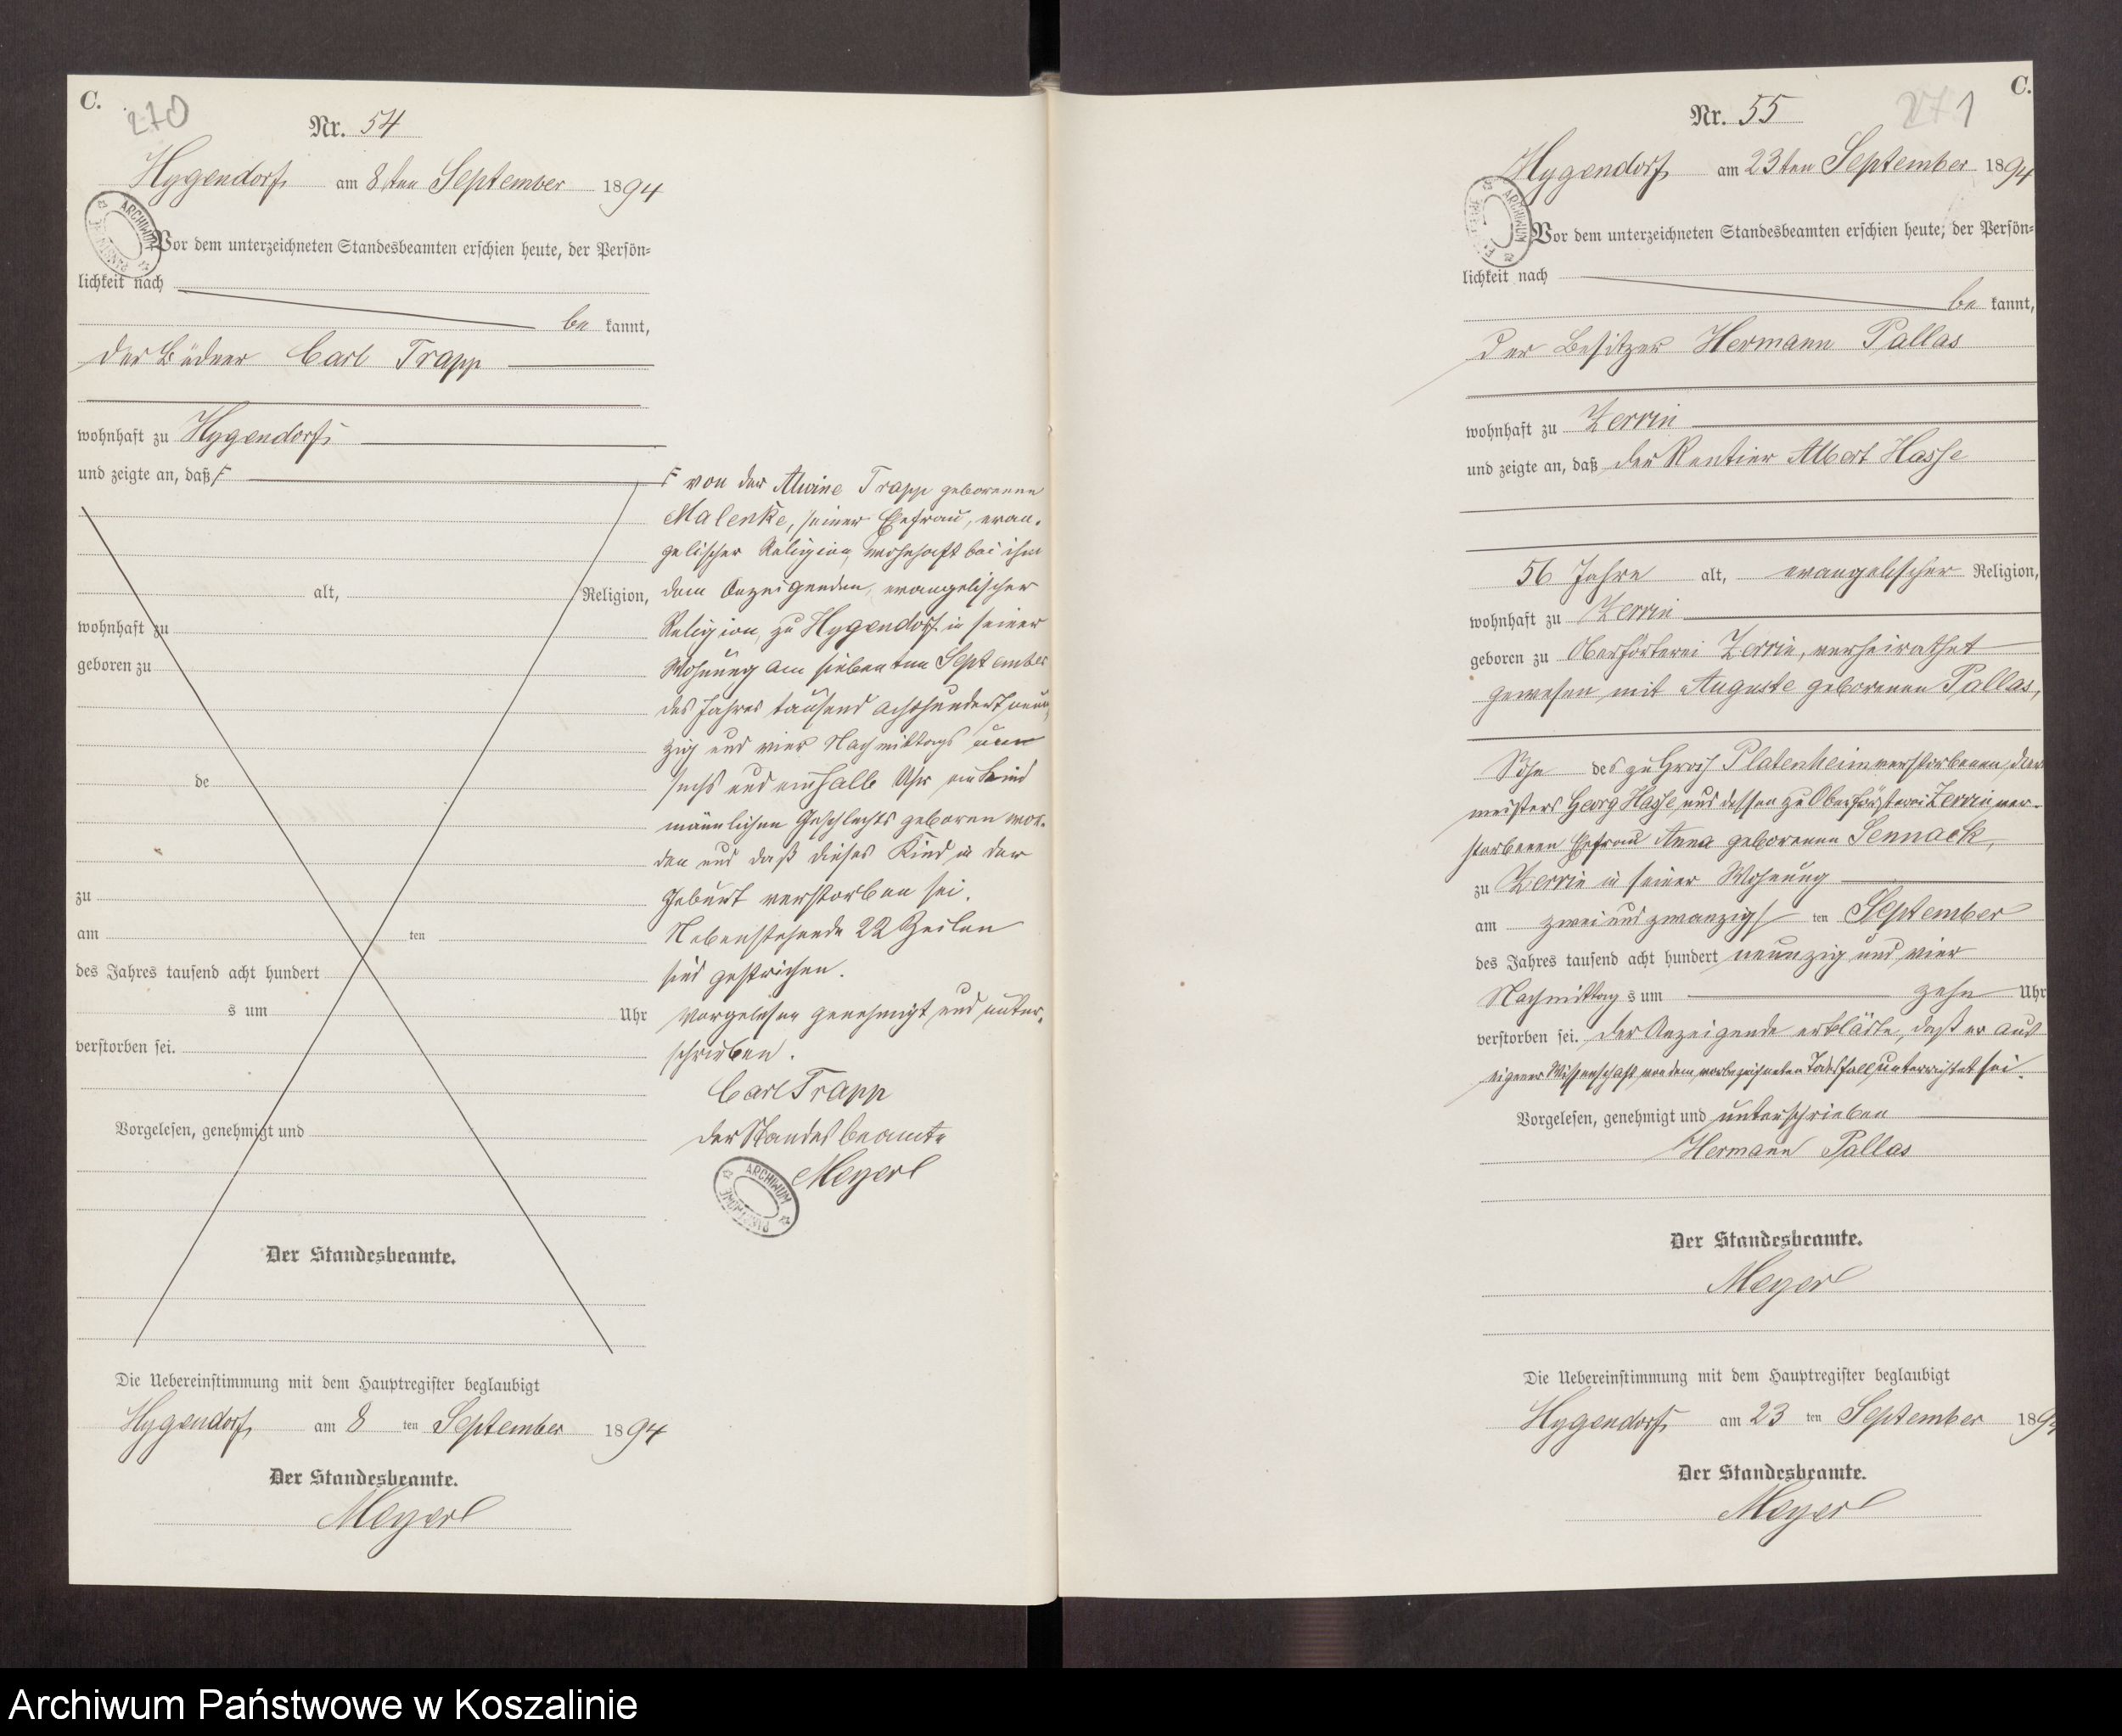 C.
270
Nr. 54
Hygendorf am 8ten September 1894
Vor dem unterzeichneten Standesbeamten erschien heute, der Persön-
lichkeit nach
be kannt,
der Büdner Carl Trapp
wohnhaft zu Hygendorf
und zeigte an, daß
alt, Religion,
wohnhaft zu
geboren zu
de
zu
am ten
des Jahres tausend acht hundert
s um Uhr
verstorben sei.
Vorgelesen, genehmigt und
Der Standesbeamte.
von der Alwine Trapp geborenen
Malenke, seiner Ehefrau, evan-
gelischer Religion, wohnhaft bei ihm
dem Anzeigenden, evangelischer
Religion, zu Hygendorf in seiner
Wohnung am siebenten September
des Jahres tausend achthundert neun
zig und vier Nachmittags um
sechs und einhalb Uhr ein Kind
männlichen Geschlechts geboren wor-
den und daß dieses Kind in der
Geburt verstorben sei.
Nebenstehende 22 Zeilen
sind gestrichen.
Vorgelesen genehmigt und unter-
schrieben.
Carl Trapp
Der Standesbeamte
Meyerl
ARCHIWUM PAŃSTWOWE
Die Uebereinstimmung mit dem Hauptregister beglaubigt
Hygendorf, am 8 ten September 1894
Der Standesbeamte.
Meyerl
C.
271
Nr. 55
Hygendorf am 23ten September 1894
Vor dem unterzeichneten Standesbeamten erschien heute, der Persön-
lichkeit nach
be kannt,
der Besitzer Hermann Pallas
wohnhaft zu Zerrin
und zeigte an, daß der Rentier Albert Hasse
56 Jahre alt, evangelischer Religion,
wohnhaft zu Zerrin
geboren zu Oberförsterei Zerrin, verheirathet
gewesen mit Auguste geborenen Pallas,
Sohn des zu Groß Platenheim verstorbenen
meisters Georg Hasse, und dessen zu Oberförsterei Zerrin ver-
storbenen Ehefrau Anna geborenen Sennack,
zu Zerrin in seiner Wohnung
am zwei und zwanzigs ten September
des Jahres tausend acht hundert neunzig und vier
Nachmittag s um zehn Uhr
verstorben sei. Der Anzeigende erklärte, daß er aus
eigener Wissenschaft von dem vorbezeichneten Todesfall unterrichtet sei.
Vorgelesen, genehmigt und unterschrieben
Hermann Pallas
Der Standesbeamte.
Meyerl
Die Uebereinstimmung mit dem Hauptregister beglaubigt
Hygendorf am 23 ten September 1894
Der Standesbeamte.
Meyerl
Archiwum Państwowe w Koszalinie